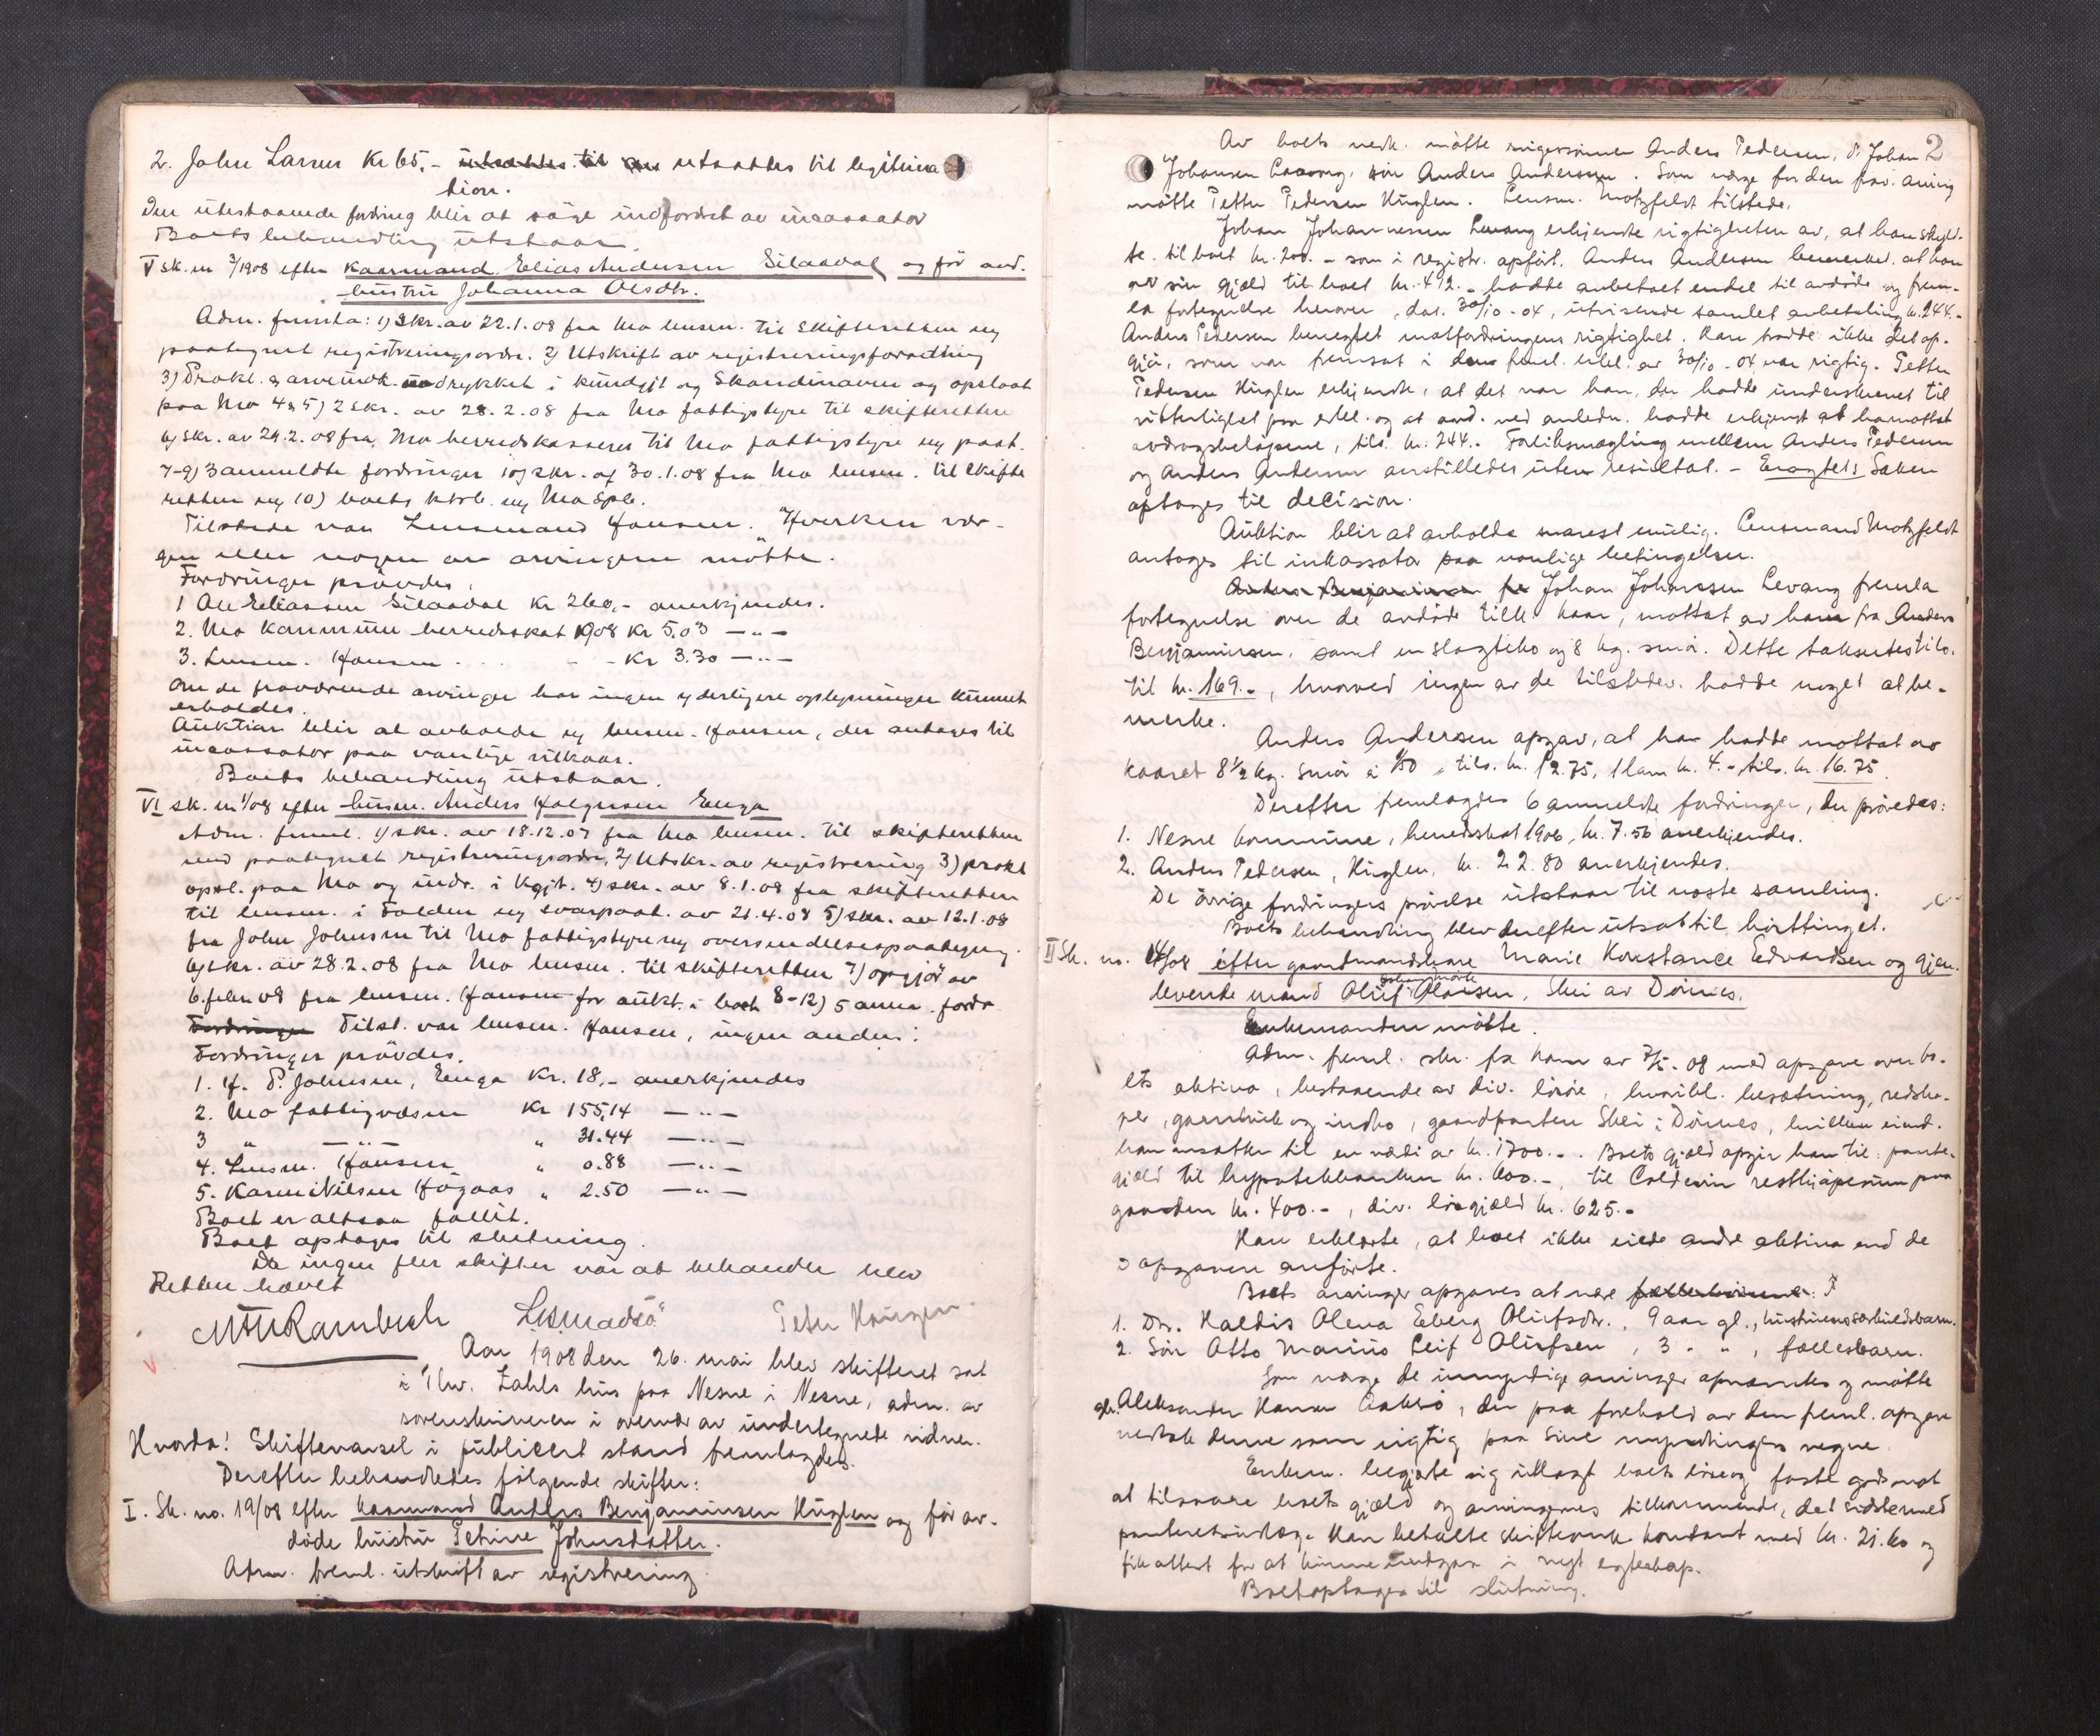 2. John Larsen Kr 65.- utsattes til legitima
tion.
Den utestaaende fordring blir at söge indfordret av incassator
Boets behandling utstaar.
V sk. nr 3/1908 efter kaarmand Elias Andersen Silaadal og för avd.
hustru Johanna Olsdtr.
Adm. fremla: 1) Skr. av 22.1.08 fra Mo lensm. til skifteretten
paategnet registreringsordre. 2) Utskrift av registreringsforretning
3) Prokl. & arveindk. indrykket i kundgjt og Skandinaven og opslaat
paa Mo 4 & 5) 2 skr. av 28.2.08 fra Mo fattigstyre til skifteretten
6) skr. av 29.2.08 fra Mo herredskasserer til Mo fattigstyre m paat.
7-9) 3 anmeldte fordringer 10) skr. af 30.1.08 fra Mo lensm. til skifte
retten
Tilstede var Lensmand Hansen. Hverken vær-
gen eller nogen av arvingerne mötte.
Fordringer prövdes.
1 Ole Eliassen Silaadal Kr 260,- anerkjendes.
2. Mo kommune herredsskat 1908 Kr 5.03 -"-
3. Lensm. Hansen . . . - Kr 3.30 -"-
Om de fraværende arvinger har ingen yderligere oplysninger kunnet
erholdes.
Auktion blir at avholde ved lensm. Hansen, der antages til
incassator paa vanlige vilkaar.
Boets behandling utstaar.
VI sk. nr 1/08 efter husm. Anders Enga
Adm. freml. 1) skr. av 18.12.07 fra Mo lensm. til skifteretten
med paategnet registreringsordre, 2) Utskr. av registrering 3) prokl
opsl. paa Mo og indr. i Kgjt. 4) skr. av 8.1.08 fra skifteretten
til lensm. i Folden m svarpaat. av 21.4.08 5) skr. av 12.1.08
fra John Johnsen til Mo fattigstyre m oversendelsespaategning.
6) skr. av 28.2.08 fra Mo lensm. til skifteretten 7) opgjör av
6. febr. 08 fra lensm. Hansen for aukt. i boet 8-12) 5 anm. fordr
Fordringer Tilst. var lensm. Hansen, ingen anden:
Fordringer prövdes.
1. H. P. Johnsen, Enga Kr. 18,- anerkjendes
2. Mo fattigvæsen Kr 155,14 -"-
3 " -"- " 31.44 -"-
4. Lensm. Hansen " 0.88 -"-
5. Karen Nilsen Högaas " 2.50 -"-
Boet er altsaa fallit.
Boet optages til slutning.
Da ingen fler skifter var at behandle blev
Retten hævet
Peter
Aar 1908 den 26. mai blev skifteret sat
i Thv. Zahls hus paa Nesne i Nesne, adm. av
sorenskriveren i overvær av undertegnede vidner.
Hvorda! Skiftevarsel i publicert stand fremlagdes.
Derefter behandledes følgende skifter:
I. Sk. no. 19/08 efter kaarmand Anders Benjaminsen Huglen og før av-
døde hustru Petrine Johnsdatter.
Adm. freml. utskrift av registrering
2
Av boets vedk. møtte mygersønnen Anders Pedersen, d. Johan
Johansen Levang, søn Anders Andersen. Som værge for den frav. arving
møtte Petter Pedersen Huglen. Lensm. Motzfeldt tilstede.
Johan Johannessen Levang erkjendte rigtigheten av, at han skyld-
te til boet kr. 200.- som i registr. opført. Anders Andersen bemerket at han
av sin gjæld til boet kr. 412.- hadde avbetalt endel til avdøde og frem-
la fortegnelse herover, dat. 30/10-04, utvisende samlet avbetaling kr. 244.-
Anders Pedersen benegtet motfordringens rigtighet. Han trodde ikke det op-
gjør, som var fremsat i den freml. erkl. av 30/10-04 var rigtig. Petter
Pedersen Huglen erkjendte, at det var han, der hadde underskrevet til
vitterlighet paa erkl. og at avd. ved anledn. hadde erkjendt at ha mottat
avdragsbeløpene, tils. kr. 244.- Forliksmægling mellem Anders Pedersen
og Anders Andersen anstilledes uten resultat. - Eragtet: Saken
optages til decision.
Auktion blir at avholde snarest mulig. Lensmand Motzfeldt
antages til inkassator paa vanlige betingelser.
Anders Benjaminsen Johan Johansen Levang fremla
fortegnelse over de avdøde tilk. kaar, mottat av ham fra Anders
Benjaminsen, samt en slagteko og 8 kg. smør. Dette taksertes tils.
til kr. 169.-, hvorved ingen av de tilstedev. hadde noget at be-
merke.
Anders Andersen opgav, at han hadde mottat av
kaaret 8½ kg. smør à 1.50, tils. kr. 12.75, 1 lam kr. 4.-, tils. kr. 16.75.
Derefter fremlagdes 6 anmeldte fordringer, der prøvedes:
1. Nesne kommune, herredsskat 1906, kr. 7.56 anerkjendes.
2. Anders Pedersen, Huglen, kr. 22.80 anerkjendes.
De øvrige fordringers prøvelse utstaar til næste samling.
Boets behandling blev derefter utsat til høsttinget.
II Sk. no. /08 efter gaardmandskone Marie Konstance Edvardsen og gjen-
levende mand Oluf Olaisen, Skei av Dønnes.
Enkemanden møtte.
Adm. freml. skr. fra ham av 08 med opgave over bo-
ets aktiva, bestaaende av div. løsøre, hvoribl. besætning, redska-
per, gaardsbruk og indbo, gaardparten Skei i Dønnes, hvilken eiend.
han ansatte til en værdi av kr. 1700.-. Boets gjæld opgir han til: pante-
gjæld til hypotekbanken kr. 600.-, til Coldevin restkjøpesum paa
gaarden kr. 400.-, div. løsgjæld kr. 625.-
Han erklærte, at boet ikke eiede andre aktiva end de
i opgaven anførte.
Boets arvinger opgaves at være
1. Dtr. Haldis Olena Eeberg Olufsdtr., 9 aar gl., hustruens særkuldsbarn.
2. Søn Otto Marius Leif Olufsen, 3 " ", fællesbarn.
Som værge de umyndige arvinger opnævntes og møtte
Aleksander Hansen, der paa forehold av den freml. opgave
vedtok denne som rigtig paa sine myndlingers vegne.
Enkem. begjærte sig utlagt boets løse og faste gods mot
at tilsvare boets gjæld og arvingernes tilkommende, det sidste med
panteretsutlæg. Han betalte skifteomk. kontant med kr. 21.60 og
fik attest for at kunne indgaa i nyt egteskap.
Boet optages til slutning.